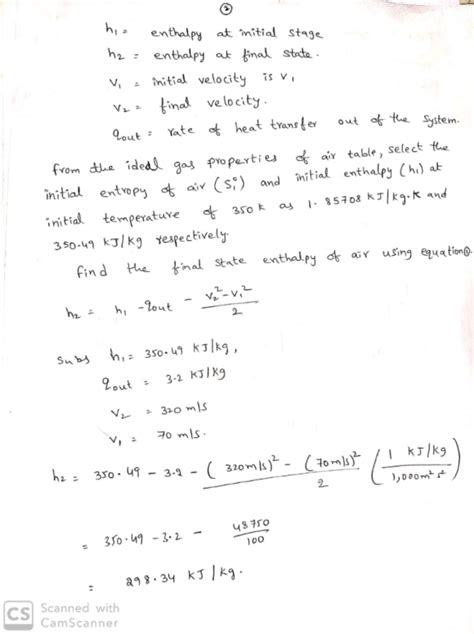 ②
h₁ = enthalpy at initial stage
h₂ = enthalpy at final state.
V₁ = initial velocity is V₁
V₂ = final velocity.
qout = rate of heat transfer out of the system.
from the ideal gas properties of air table, select the
initial entropy of air (S₁°) and initial enthalpy (h₁) at
initial temperature of 350 K as 1.85708 KJ/kg.K and
350.49 KJ/kg respectively.
find the final state enthalpy of air using equation①.
h₂ = h₁ - qout - (V₂² - V₁²) / 2
Subs h₁ = 350.49 KJ/kg,
qout = 3.2 KJ/kg
V₂ = 320 m/s
V₁ = 70 m/s.
h₂ = 350.49 - 3.2 - ((320m/s)² - (70m/s)²) / 2 (1 KJ/kg / 1,000m² s²)
= 350.49 - 3.2 - 48750 / 100
= 298.34 KJ/kg.
CS Scanned with
CamScanner